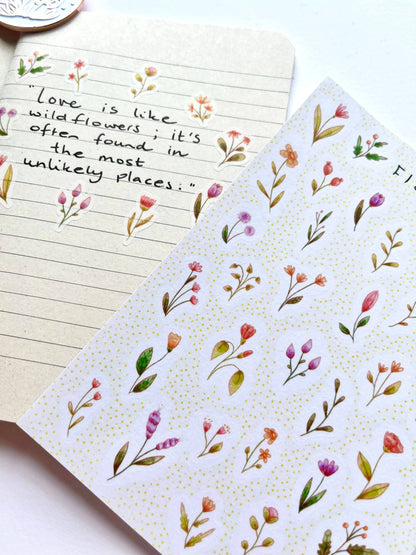 "Love is like
wildflowers; it's
often found in
the most
unlikely places."